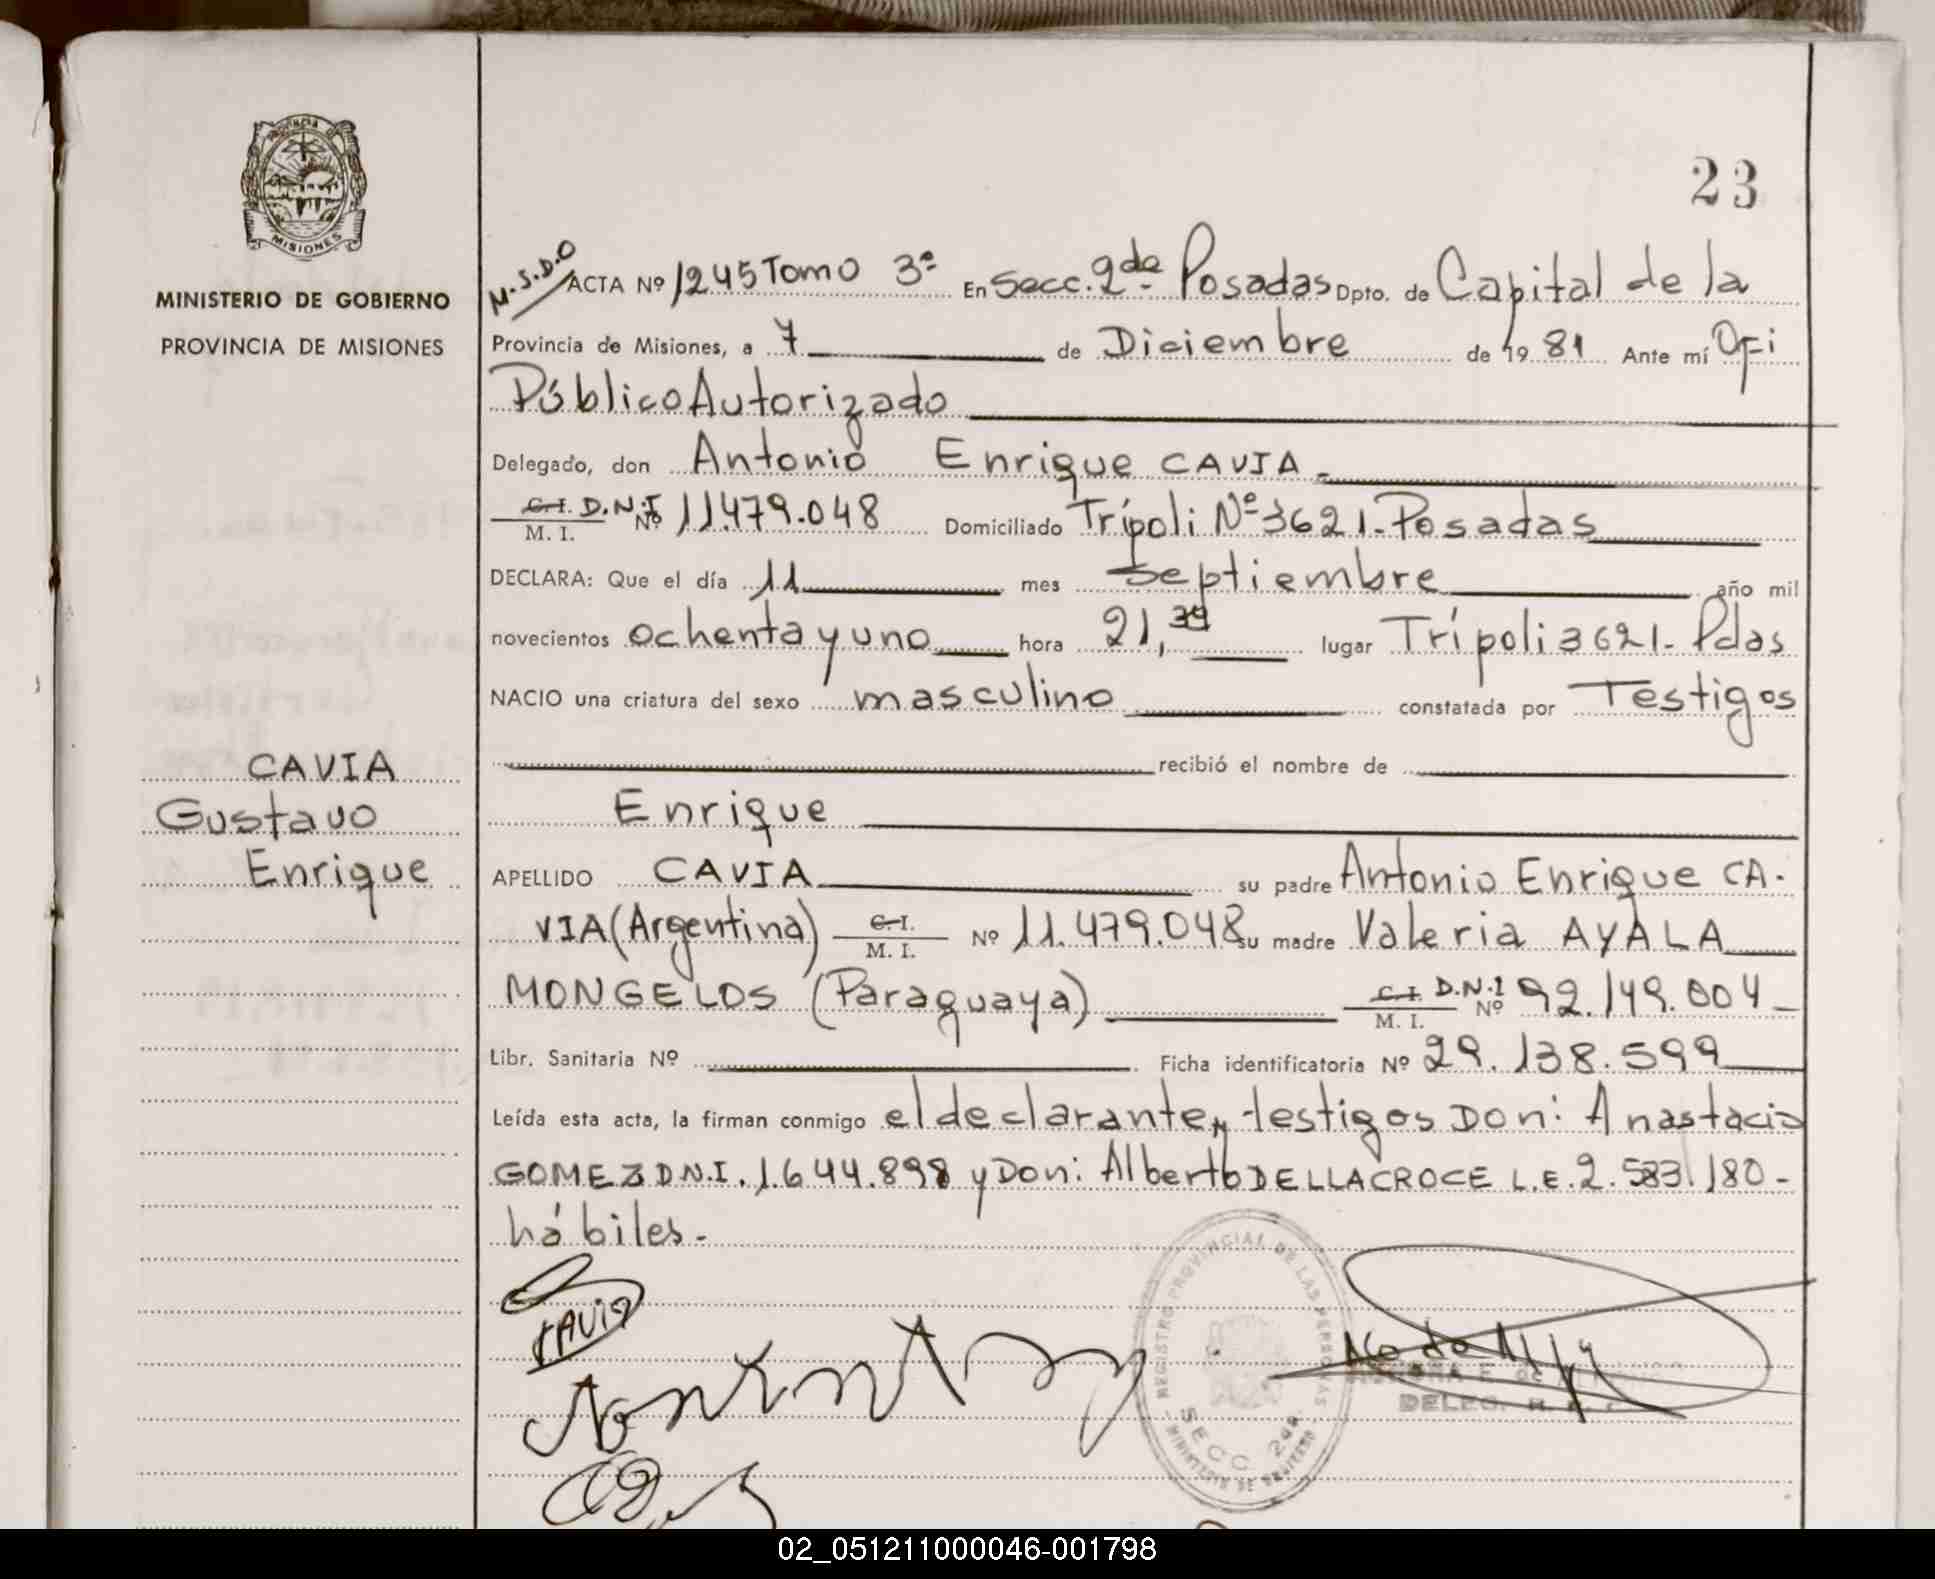 23
PROVINCIA DE
MISIONES
MINISTERIO DE GOBIERNO
PROVINCIA DE MISIONES
M.S.D.O
ACTA Nº 1245 Tomo 3º En Secc. 2da Posadas Dpto. de Capital de la
Provincia de Misiones, a 7 de Diciembre de 19 81 Ante mí Ofi
Público Autorizado
Delegado, don Antonio Enrique CAVIA
C.I. D.N.I M. I. Nº 11.479.048 Domiciliado Trípoli Nº 3621. Posadas
DECLARA: Que el día 11 mes Septiembre año mil
novecientos ochenta y uno hora 21,30 lugar Trípoli 3621- Pdas
NACIO una criatura del sexo masculino constatada por Testigos
recibió el nombre de
Enrique
CAVIA
Gustavo
Enrique
APELLIDO CAVIA su padre Antonio Enrique CA-
VIA (Argentina) C.I. M. I. Nº 11.479.048 su madre Valeria AYALA
MONGELOS (Paraguaya) C.I. D.N.I M. I. Nº 92.149.004-
Libr. Sanitaria Nº Ficha identificatoria Nº 29.138.599
Leída esta acta, la firman conmigo el declarante, testigos Don: Anastacio
GOMEZ D N.I. 1.644.898 y Don: Alberto DELLACROCE L.E. 2.583.180-
hábiles.-
CAVIA
REGISTRO PROVINCIAL DE LAS PERSONAS
SECC. 2da.
MINISTERIO DE GOBIERNO
DELEG.
02_051211000046-001798